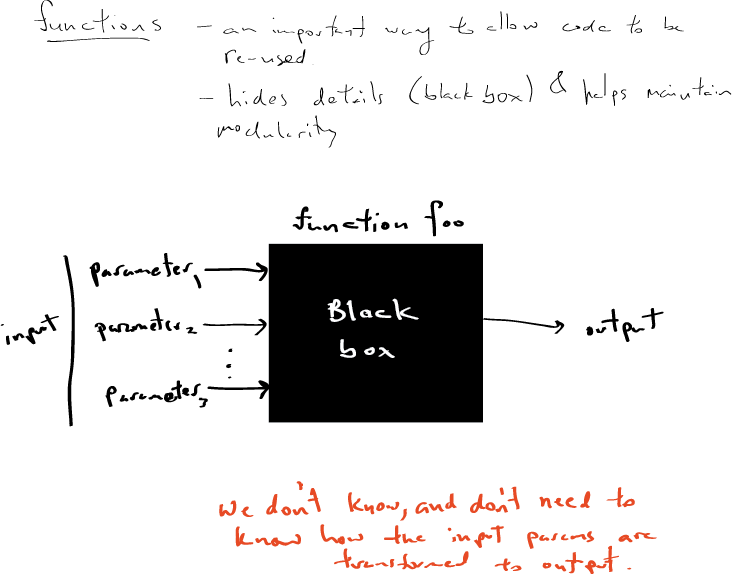 functions - an important way to allow code to be
re-used.
- hides details (black box) & helps maintain
modularity
function foo
input
parameter1
parameter2
parameter3
Black
box
output
we don't know, and don't need to
know how the input params are
transformed to output.